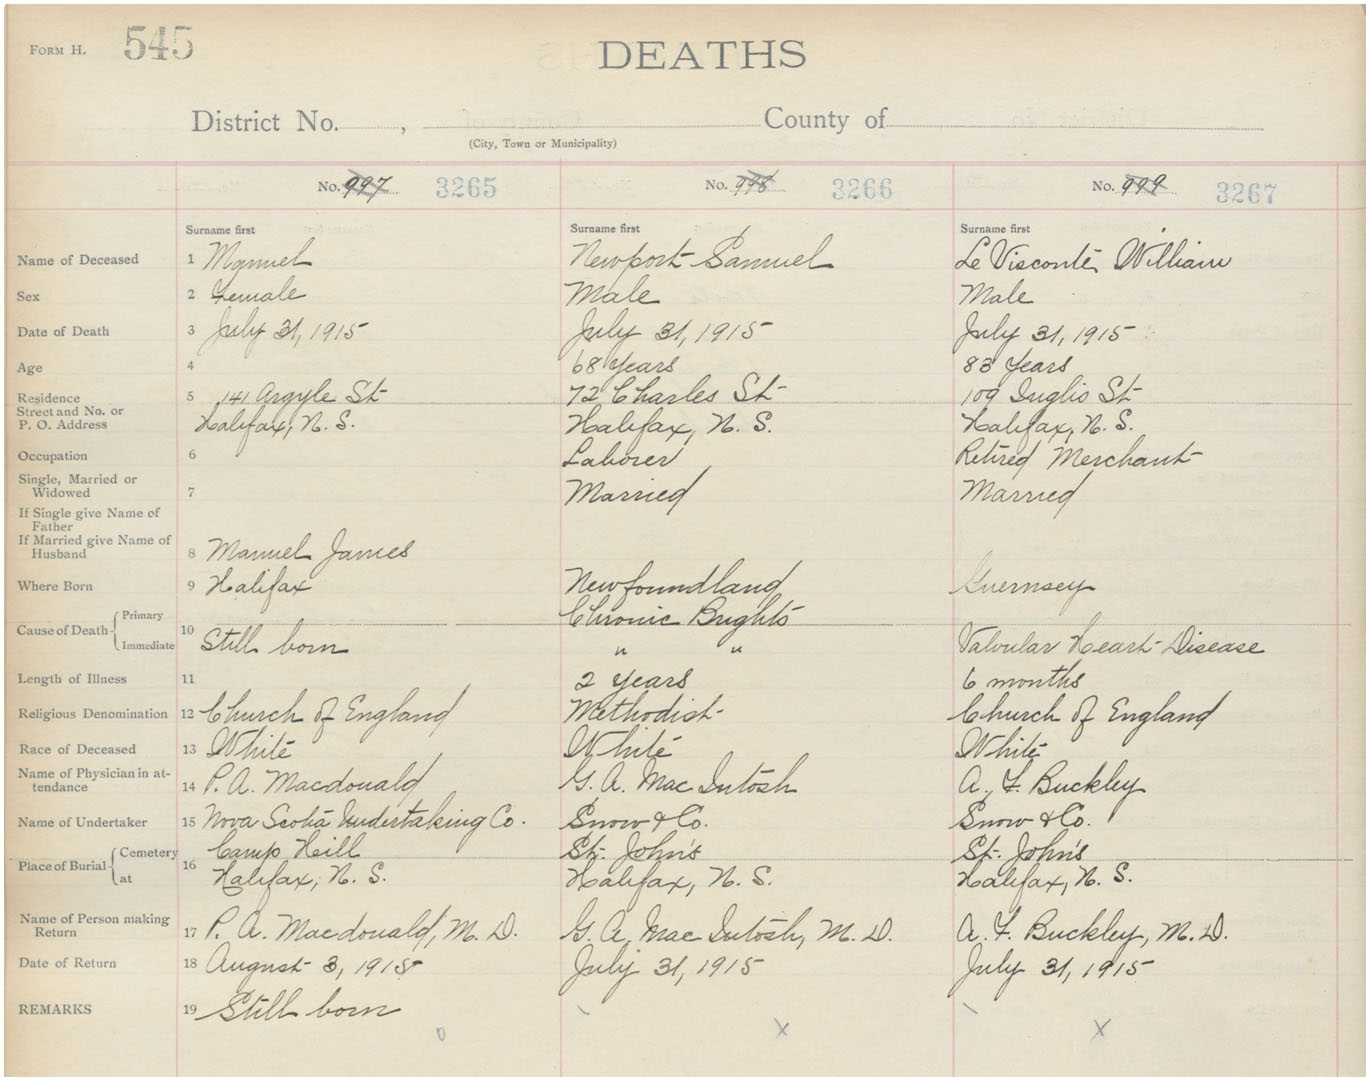 FORM H. 545
DEATHS
District No. , County of
(City, Town or Municipality)
No. 997 3265 No. 998 3266 No. 999 3267
Surname first Surname first Surname first
Name of Deceased 1 Manuel Newport Samuel Le Visconte, William
Sex 2 Female Male Male
Date of Death 3 July 31, 1915 July 31, 1915 July 31, 1915
Age 4 68 Years 83 Years
Residence 5 141 Argyle St 72 Charles St 109 Inglis St
Street and No. or
P. O. Address Halifax, N. S. Halifax, N. S. Halifax, N. S.
Occupation 6 Laborer Retired Merchant
Single, Married or
Widowed 7 Married Married
If Single give Name of
Father
If Married give Name of
Husband 8 Manuel James
Where Born 9 Halifax Newfoundland Guernsey
Cause of Death Primary 10 Chronic Brights
Immediate Still born " " Valvular Heart Disease
Length of Illness 11 2 Years 6 months
Religious Denomination 12 Church of England Methodist Church of England
Race of Deceased 13 White White White
Name of Physician in at-
tendance 14 P. A. Macdonald G. A. MacIntosh A. F. Buckley
Name of Undertaker 15 Nova Scotia Undertaking Co. Snow & Co. Snow & Co.
Place of Burial Cemetery 16 Camp Hill St. John's St. John's
at Halifax, N. S. Halifax, N. S. Halifax, N. S.
Name of Person making
Return 17 P. A. Macdonald, M. D. G. A. MacIntosh, M. D. A. F. Buckley, M. D.
Date of Return 18 August 3, 1915 July 31, 1915 July 31, 1915
REMARKS 19 Still born
0 X X